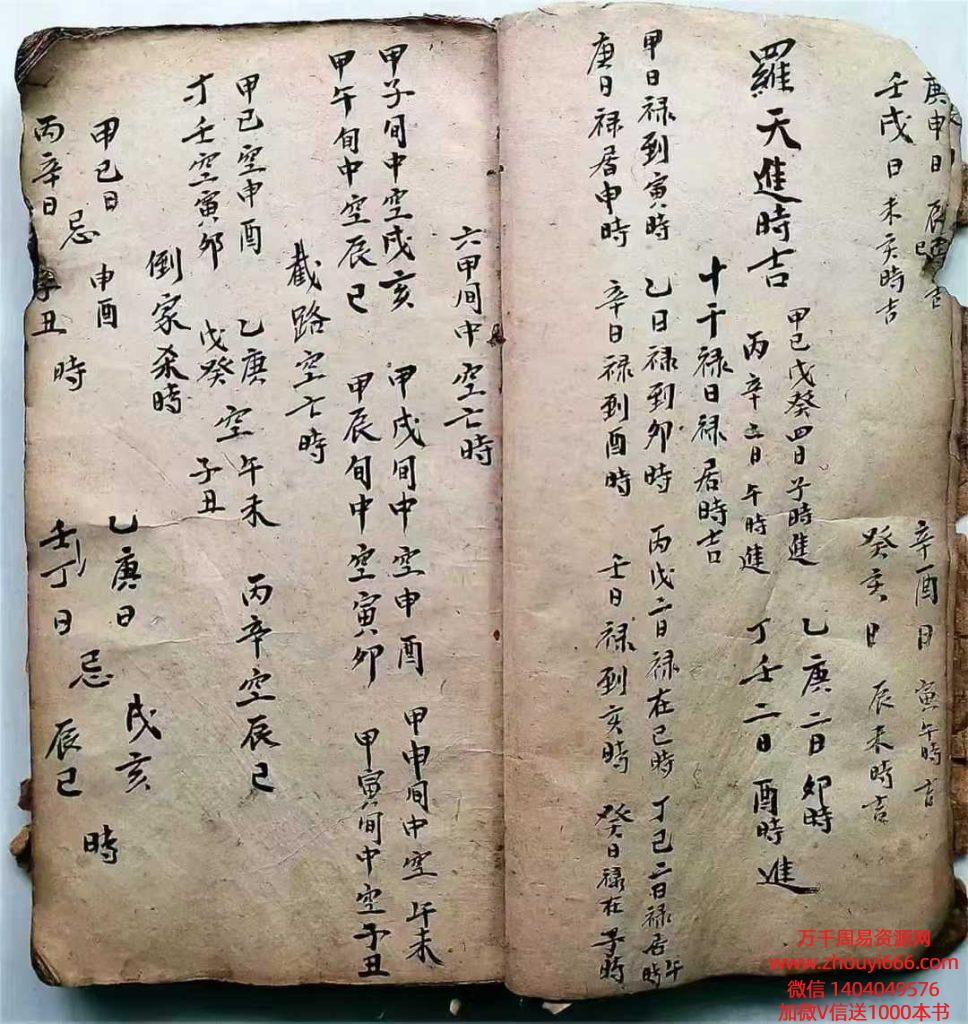 庚申日 辰巳 吉 辛酉日 寅午時吉
壬戌日未亥時吉 癸亥日 辰未時吉
羅天進時吉
甲己戊癸四日子時進 乙庚二日卯時
丙辛二日午時進 丁壬二日酉時進
十干禄日禄居時吉
甲日禄到寅時 乙日禄到卯時 丙戊二日禄在巳時 丁己二日禄居午時
庚日禄居申時 辛日禄到酉時 壬日禄到亥時 癸日禄在子時
六甲旬中空亡時
甲子旬中空戌亥 甲戌旬中空申酉 甲申旬中空午未
甲午旬中空辰巳 甲辰旬中空寅卯 甲寅旬中空子丑
截路空亡時
甲己空申酉 乙庚空午未 丙辛空辰巳
丁壬空寅卯 戊癸 子丑
倒家杀時
甲己日 申酉 乙庚日 戌亥
忌 時 忌 時
丙辛日 子丑 壬丁日 辰巳
万千周易资源网
www.zhouyi666.com
微信 1404049576
加微V信送1000本书